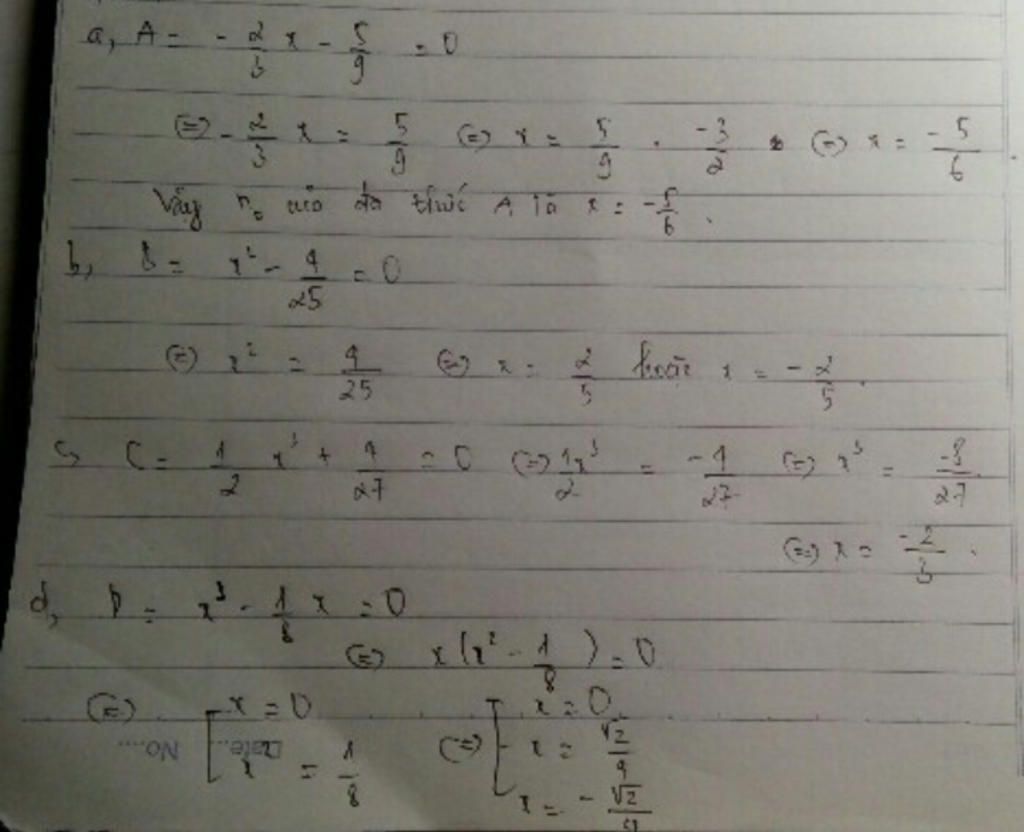 a, A = - 2/3 x - 5/9 = 0
(=) - 2/3 x = 5/9 (=) x = 5/9 . -3/2 (=) x = -5/6
Vậy no của đa thức A là x = -5/6.
b, B = x² - 4/25 = 0
(=) x² = 4/25 (=) x = 2/5 hoặc x = - 2/5.
c, C = 1/2 x³ + 4/27 = 0 (=) 1x³/2 = -4/27 (=) x³ = -8/27
(=) x = -2/3.
d, D = x³ - 1/8 x = 0
(=) x(x² - 1/8) = 0
(=) [ x = 0 (=) [ x = 0
x² = 1/8 x = √2/4
x = - √2/4
Date... No...